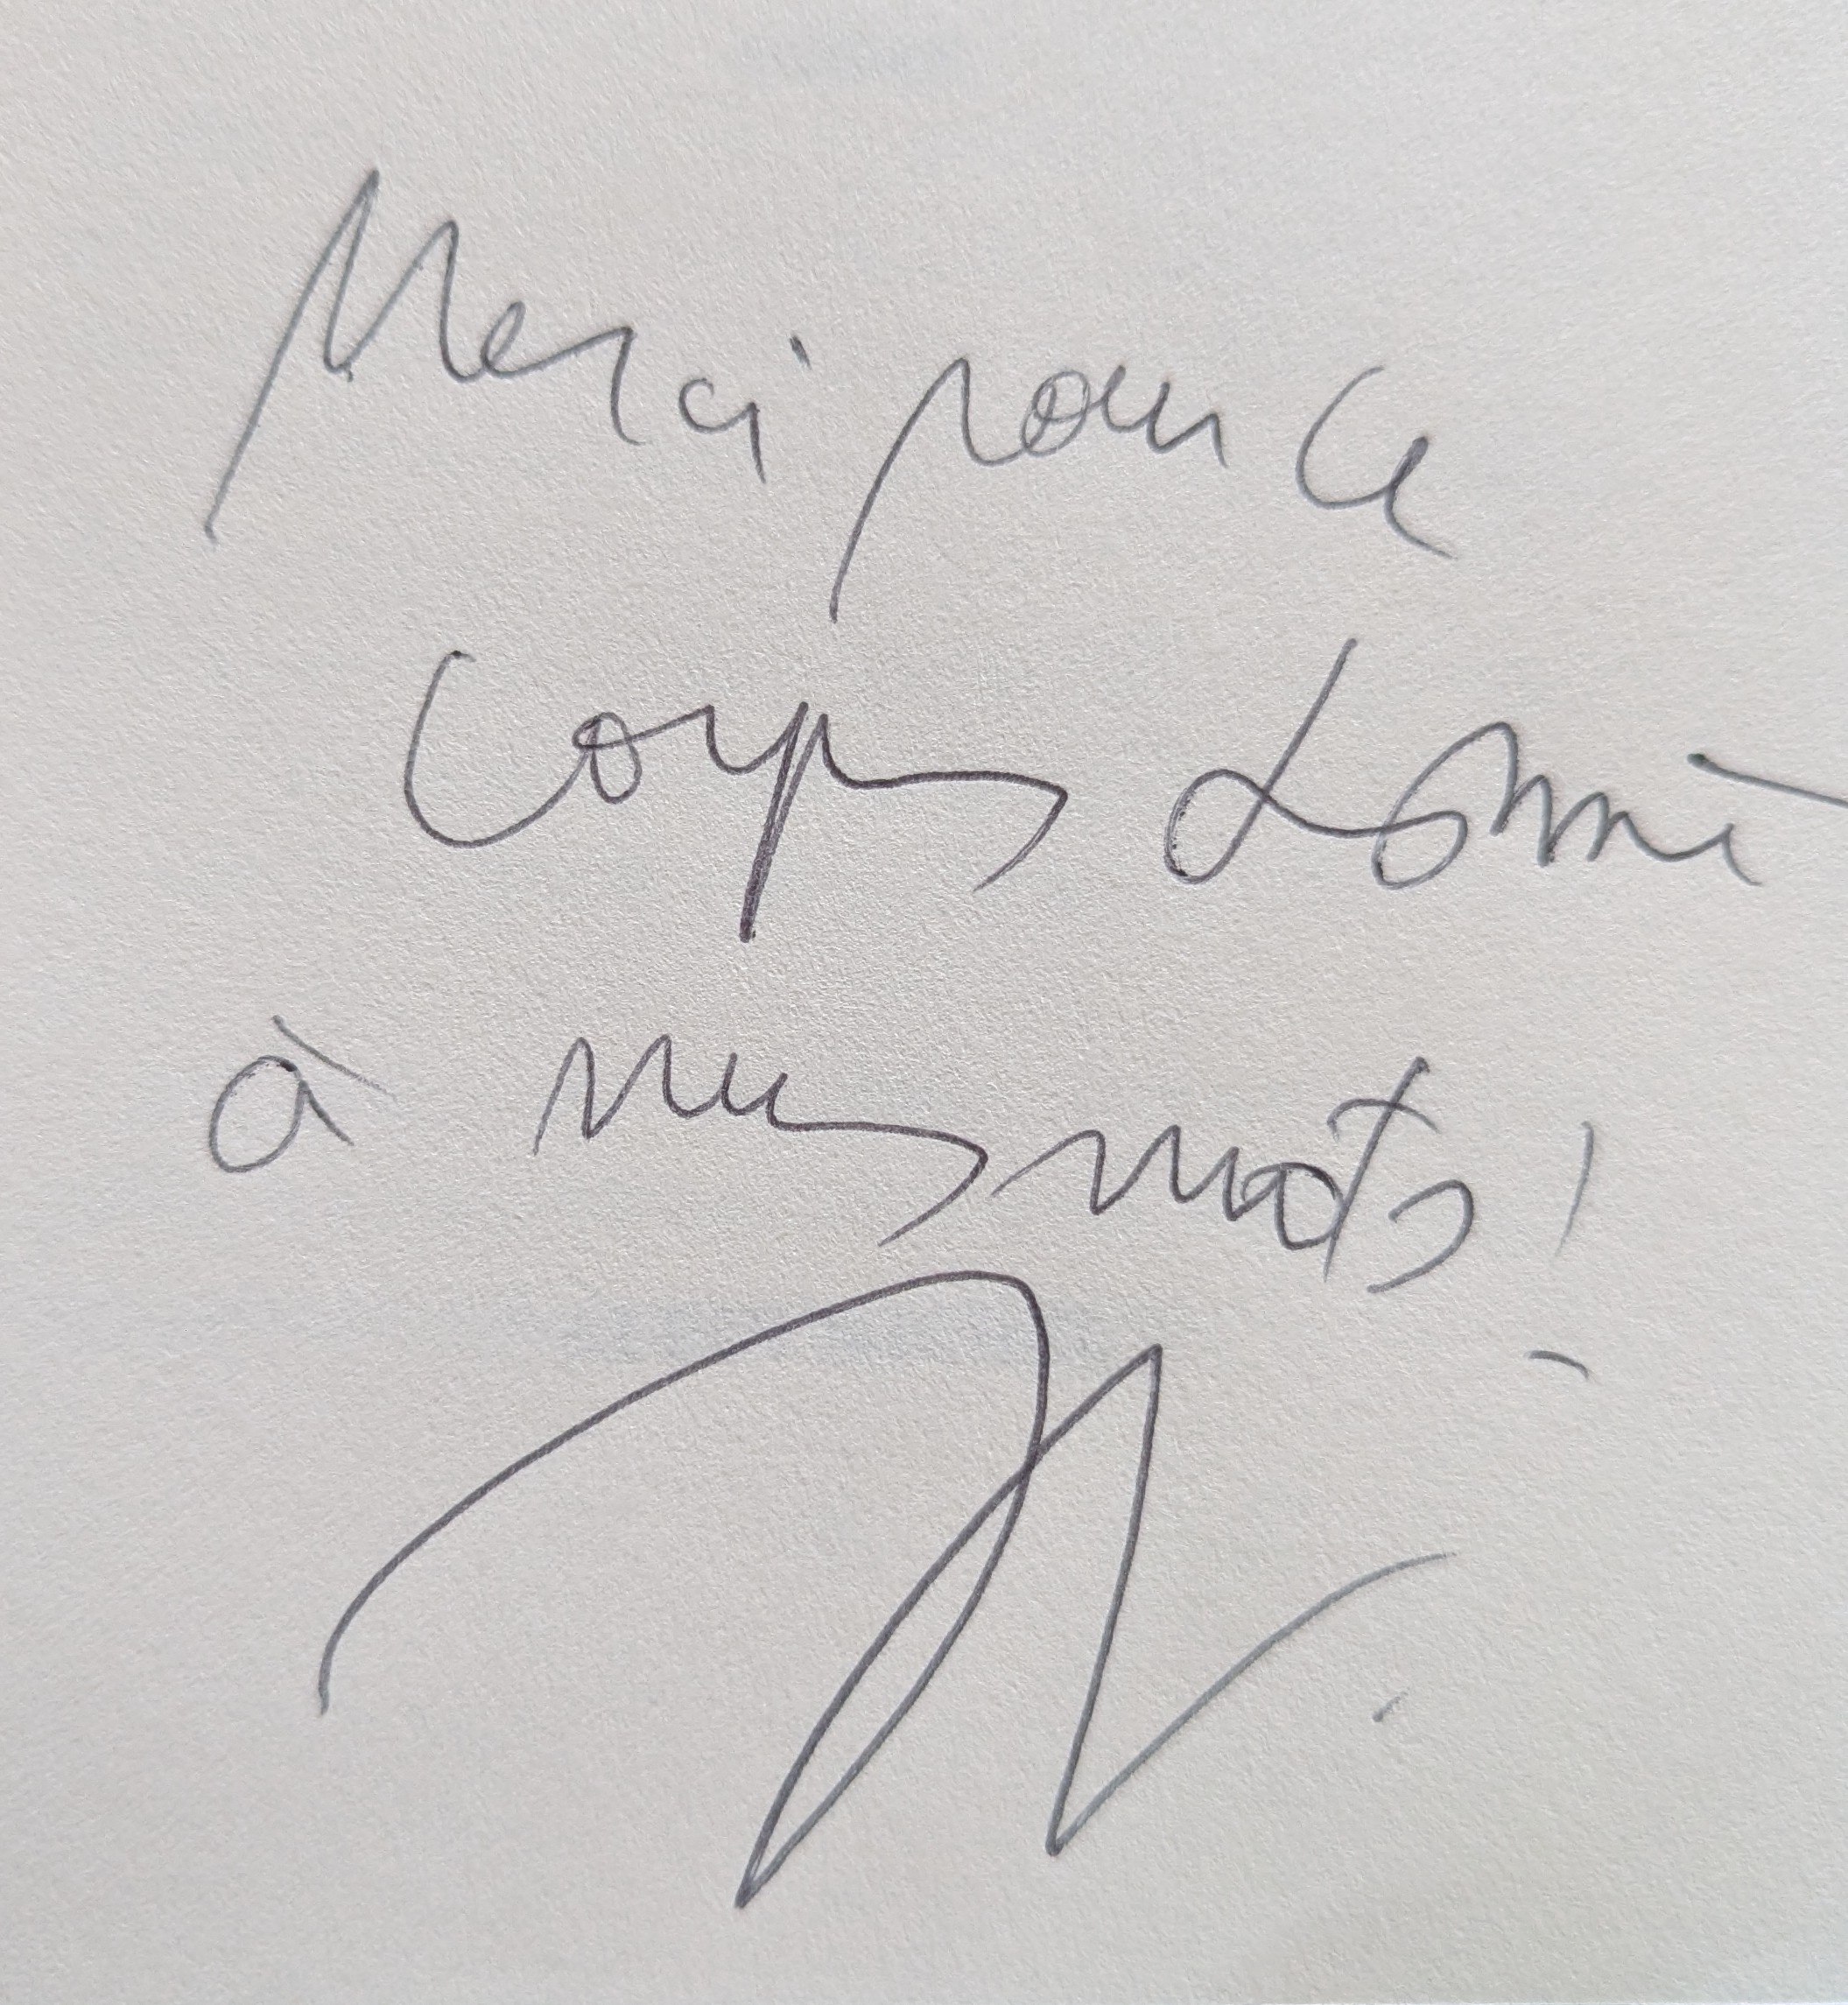 Merci pour ce
corps donné
à mes mots !